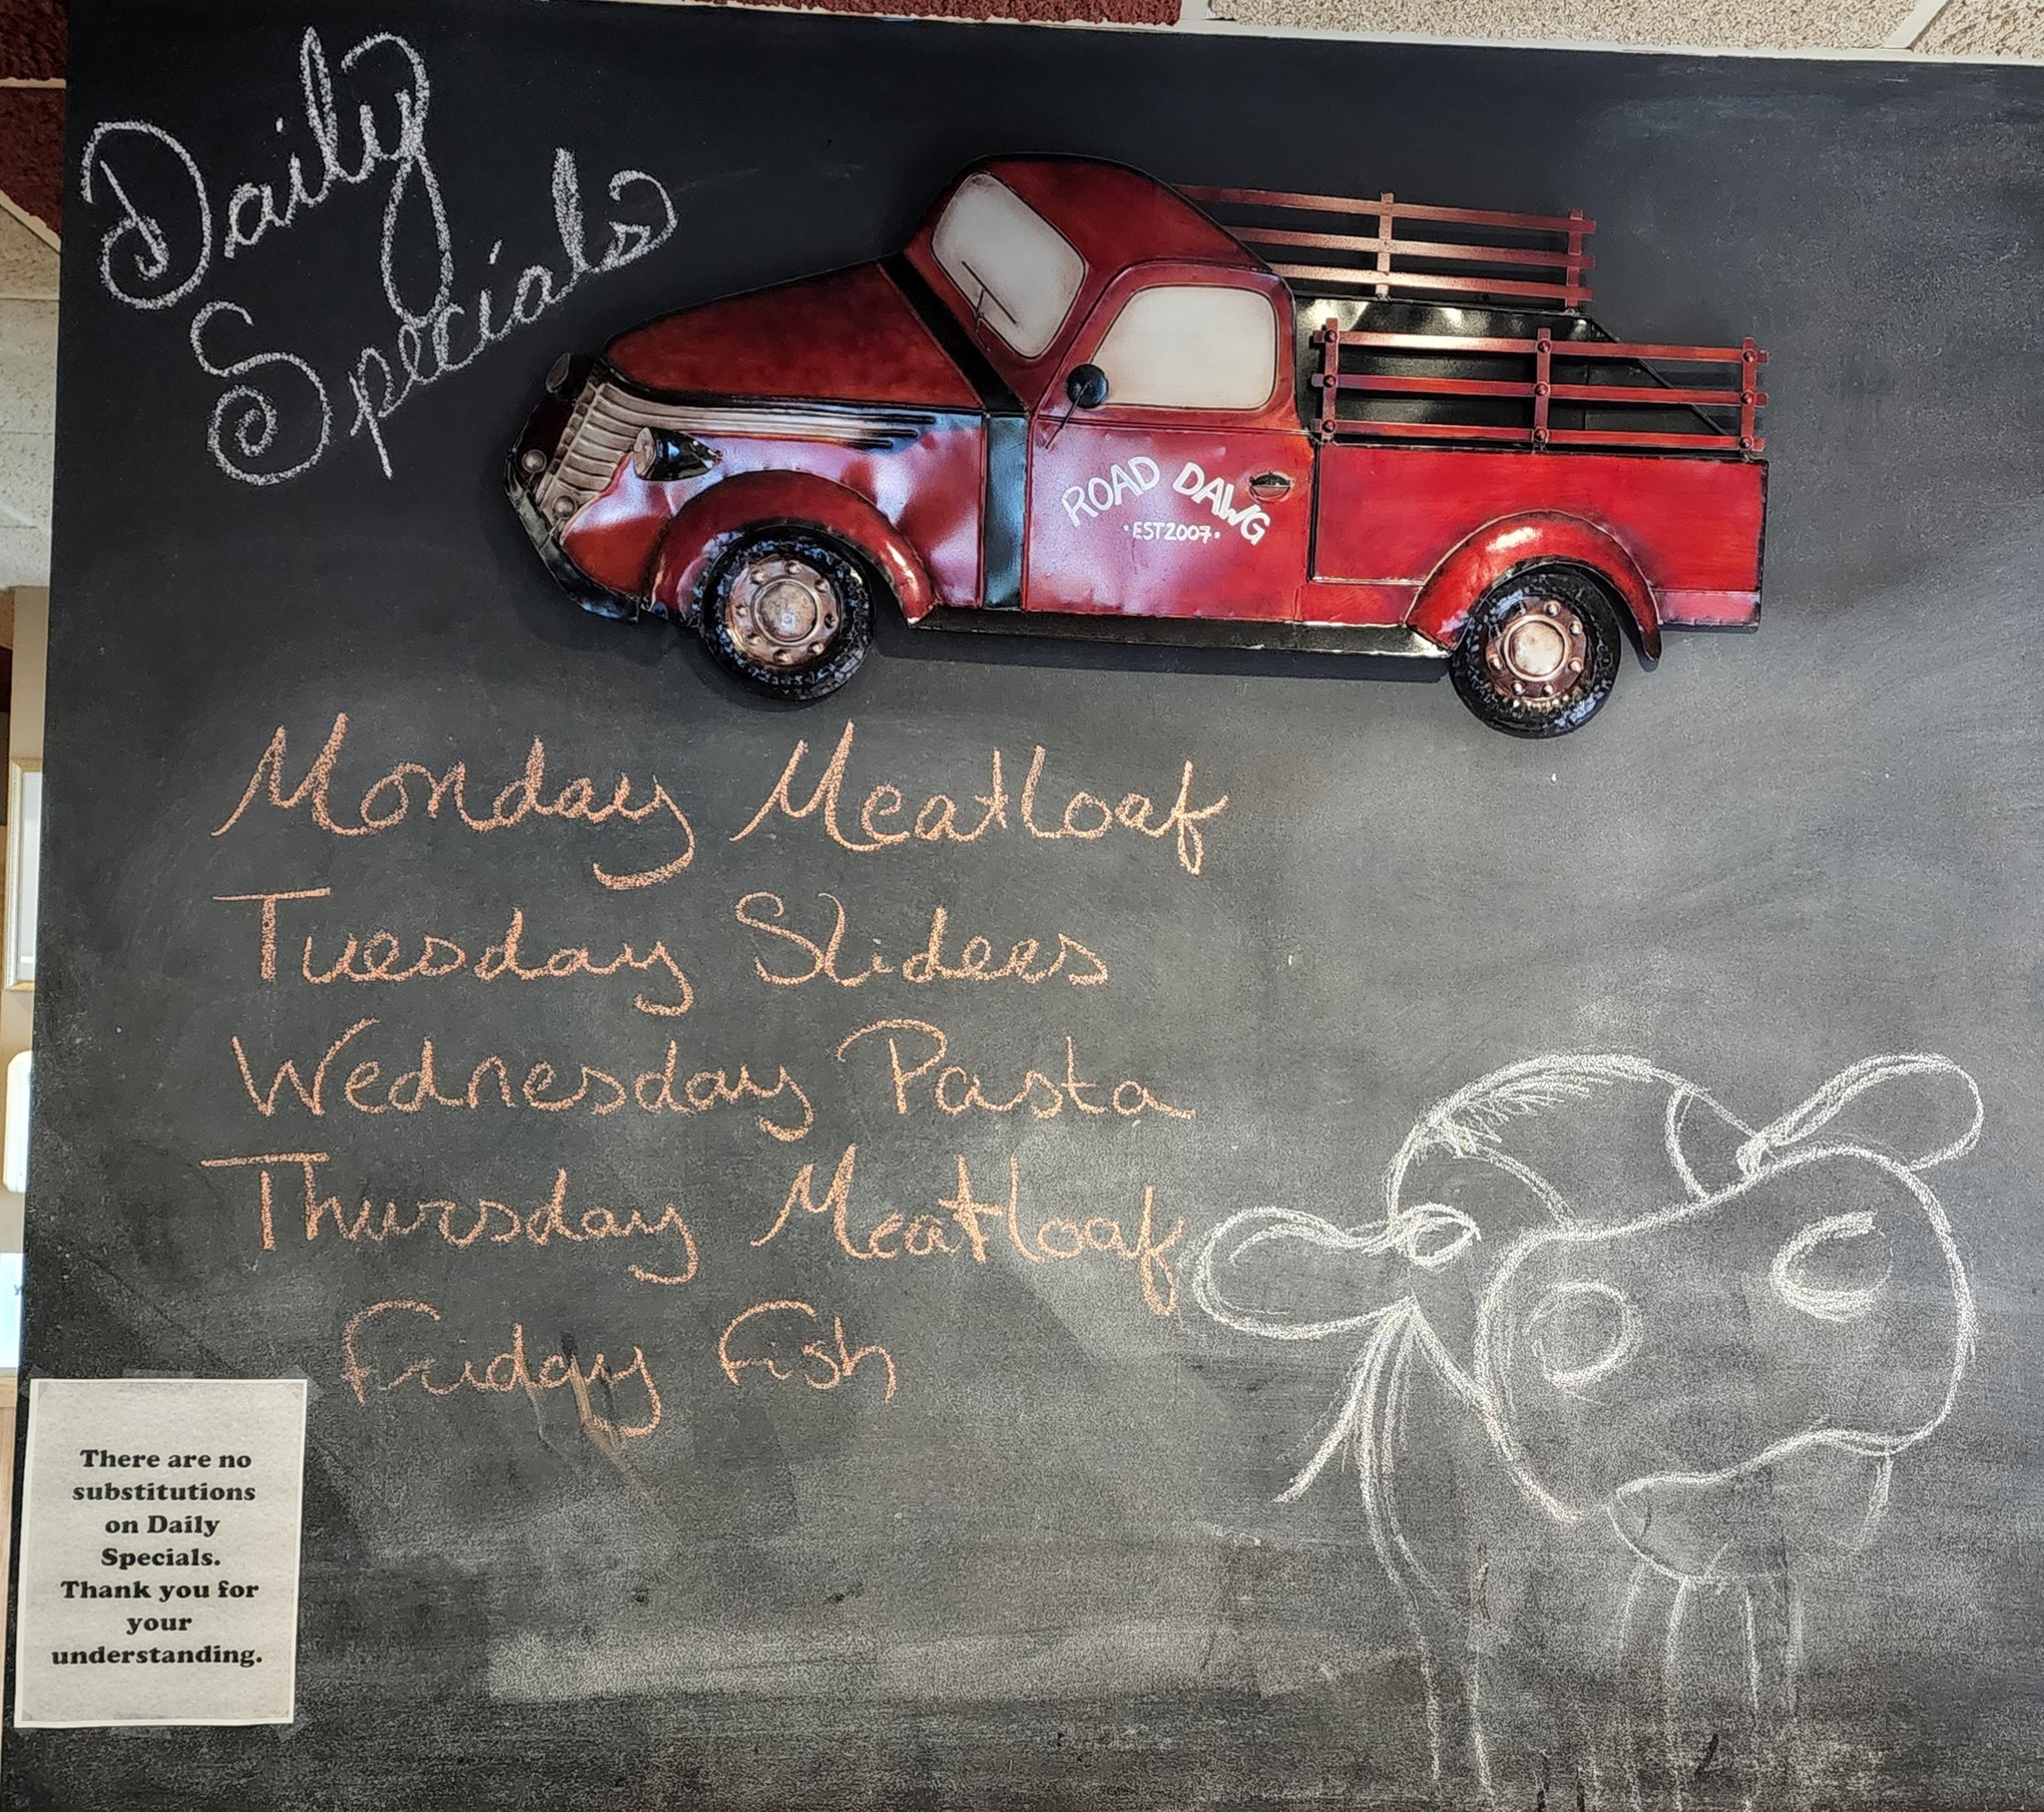 Daily
Specials
ROAD DAWG
·EST2007·
Monday Meatloaf
Tuesday Sliders
Wednesday Pasta
Thursday Meatloaf
Friday Fish
There are no
substitutions
on Daily
Specials.
Thank you for
your
understanding.